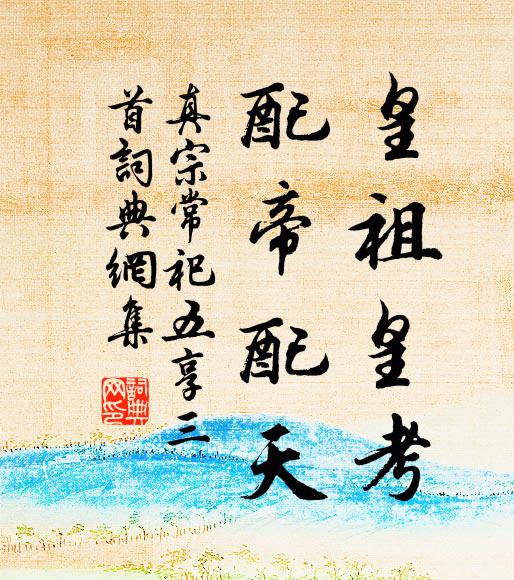 皇祖皇考
配帝配天
真宗常祀五享三
首詞典網集
詞典
网印